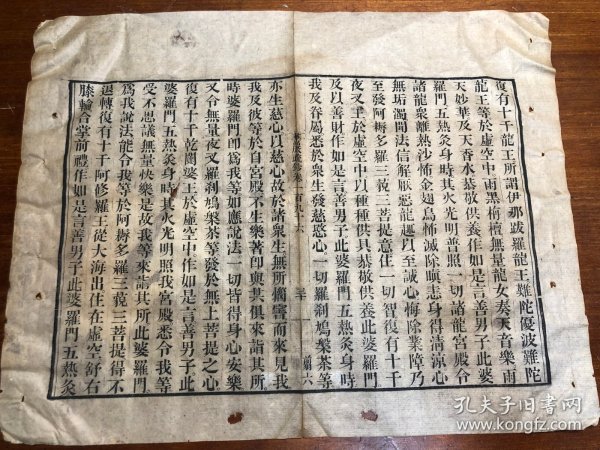 復有十千龍王所謂伊那跋羅龍王難陀優波難陀
龍王等於虛空中雨黑栴檀無量龍女奏天音樂雨
天妙華及天香水恭敬供養作如是言善男子此婆
羅門五熱炙身時其火光明普照一切諸龍宮殿令
諸龍衆離熱沙怖金翅鳥怖滅除瞋恚身得清涼心
無垢濁聞法信解厭惡龍趣以至誠心悔除業障乃
至發阿耨多羅三藐三菩提意住一切智復有十千
夜叉王於虛空中以種種供具恭敬供養此婆羅門
及以善財作如是言善男子此婆羅門五熱炙身時
我及眷屬悉於衆生發慈愍心一切羅刹鳩槃荼等
亦生慈心以慈心故於諸衆生無所惱害而來見我
我及彼等於自宮殿不生樂著即與其俱來詣其所
時婆羅門即爲我等如應說法一切皆得身心安樂
又令無量夜叉羅刹鳩槃荼等發於無上菩提之心
復有十千乾闥婆王於虛空中作如是言善男子此
婆羅門五熱炙身時其火光明照我宮殿悉令我等
受不思議無量快樂是故我等來詣其所此婆羅門
爲我說法能令我等於阿耨多羅三藐三菩提得不
退轉復有十千阿修羅王從大海出住在虛空舒右
膝輪合掌前禮作如是言善男子此婆羅門五熱炙
孔夫子旧书网
www.kongfz.com